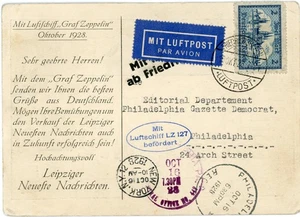 Mit Luftschiff „Graf Zeppelin“
Oktober 1928.
Sehr geehrte Herren!
Mit dem „Graf Zeppelin“
senden wir Ihnen die besten
Grüße aus Deutschland.
Mögen Ihre Bemühungen um
den Verkauf der Leipziger
Neuesten Nachrichten auch
in Zukunft erfolgreich sein!
Hochachtungsvoll
Leipziger
Neueste Nachrichten.
MIT LUFTPOST
PAR AVION
Mit
ab Friedr
LUFTPOST
Editorial Departement
Philadelphia Gazette Democrat,
Philadelphia
24 Arch Street
Mit
Luftschiff LZ 127
befördert
OCT
16
NEW YORK
1928